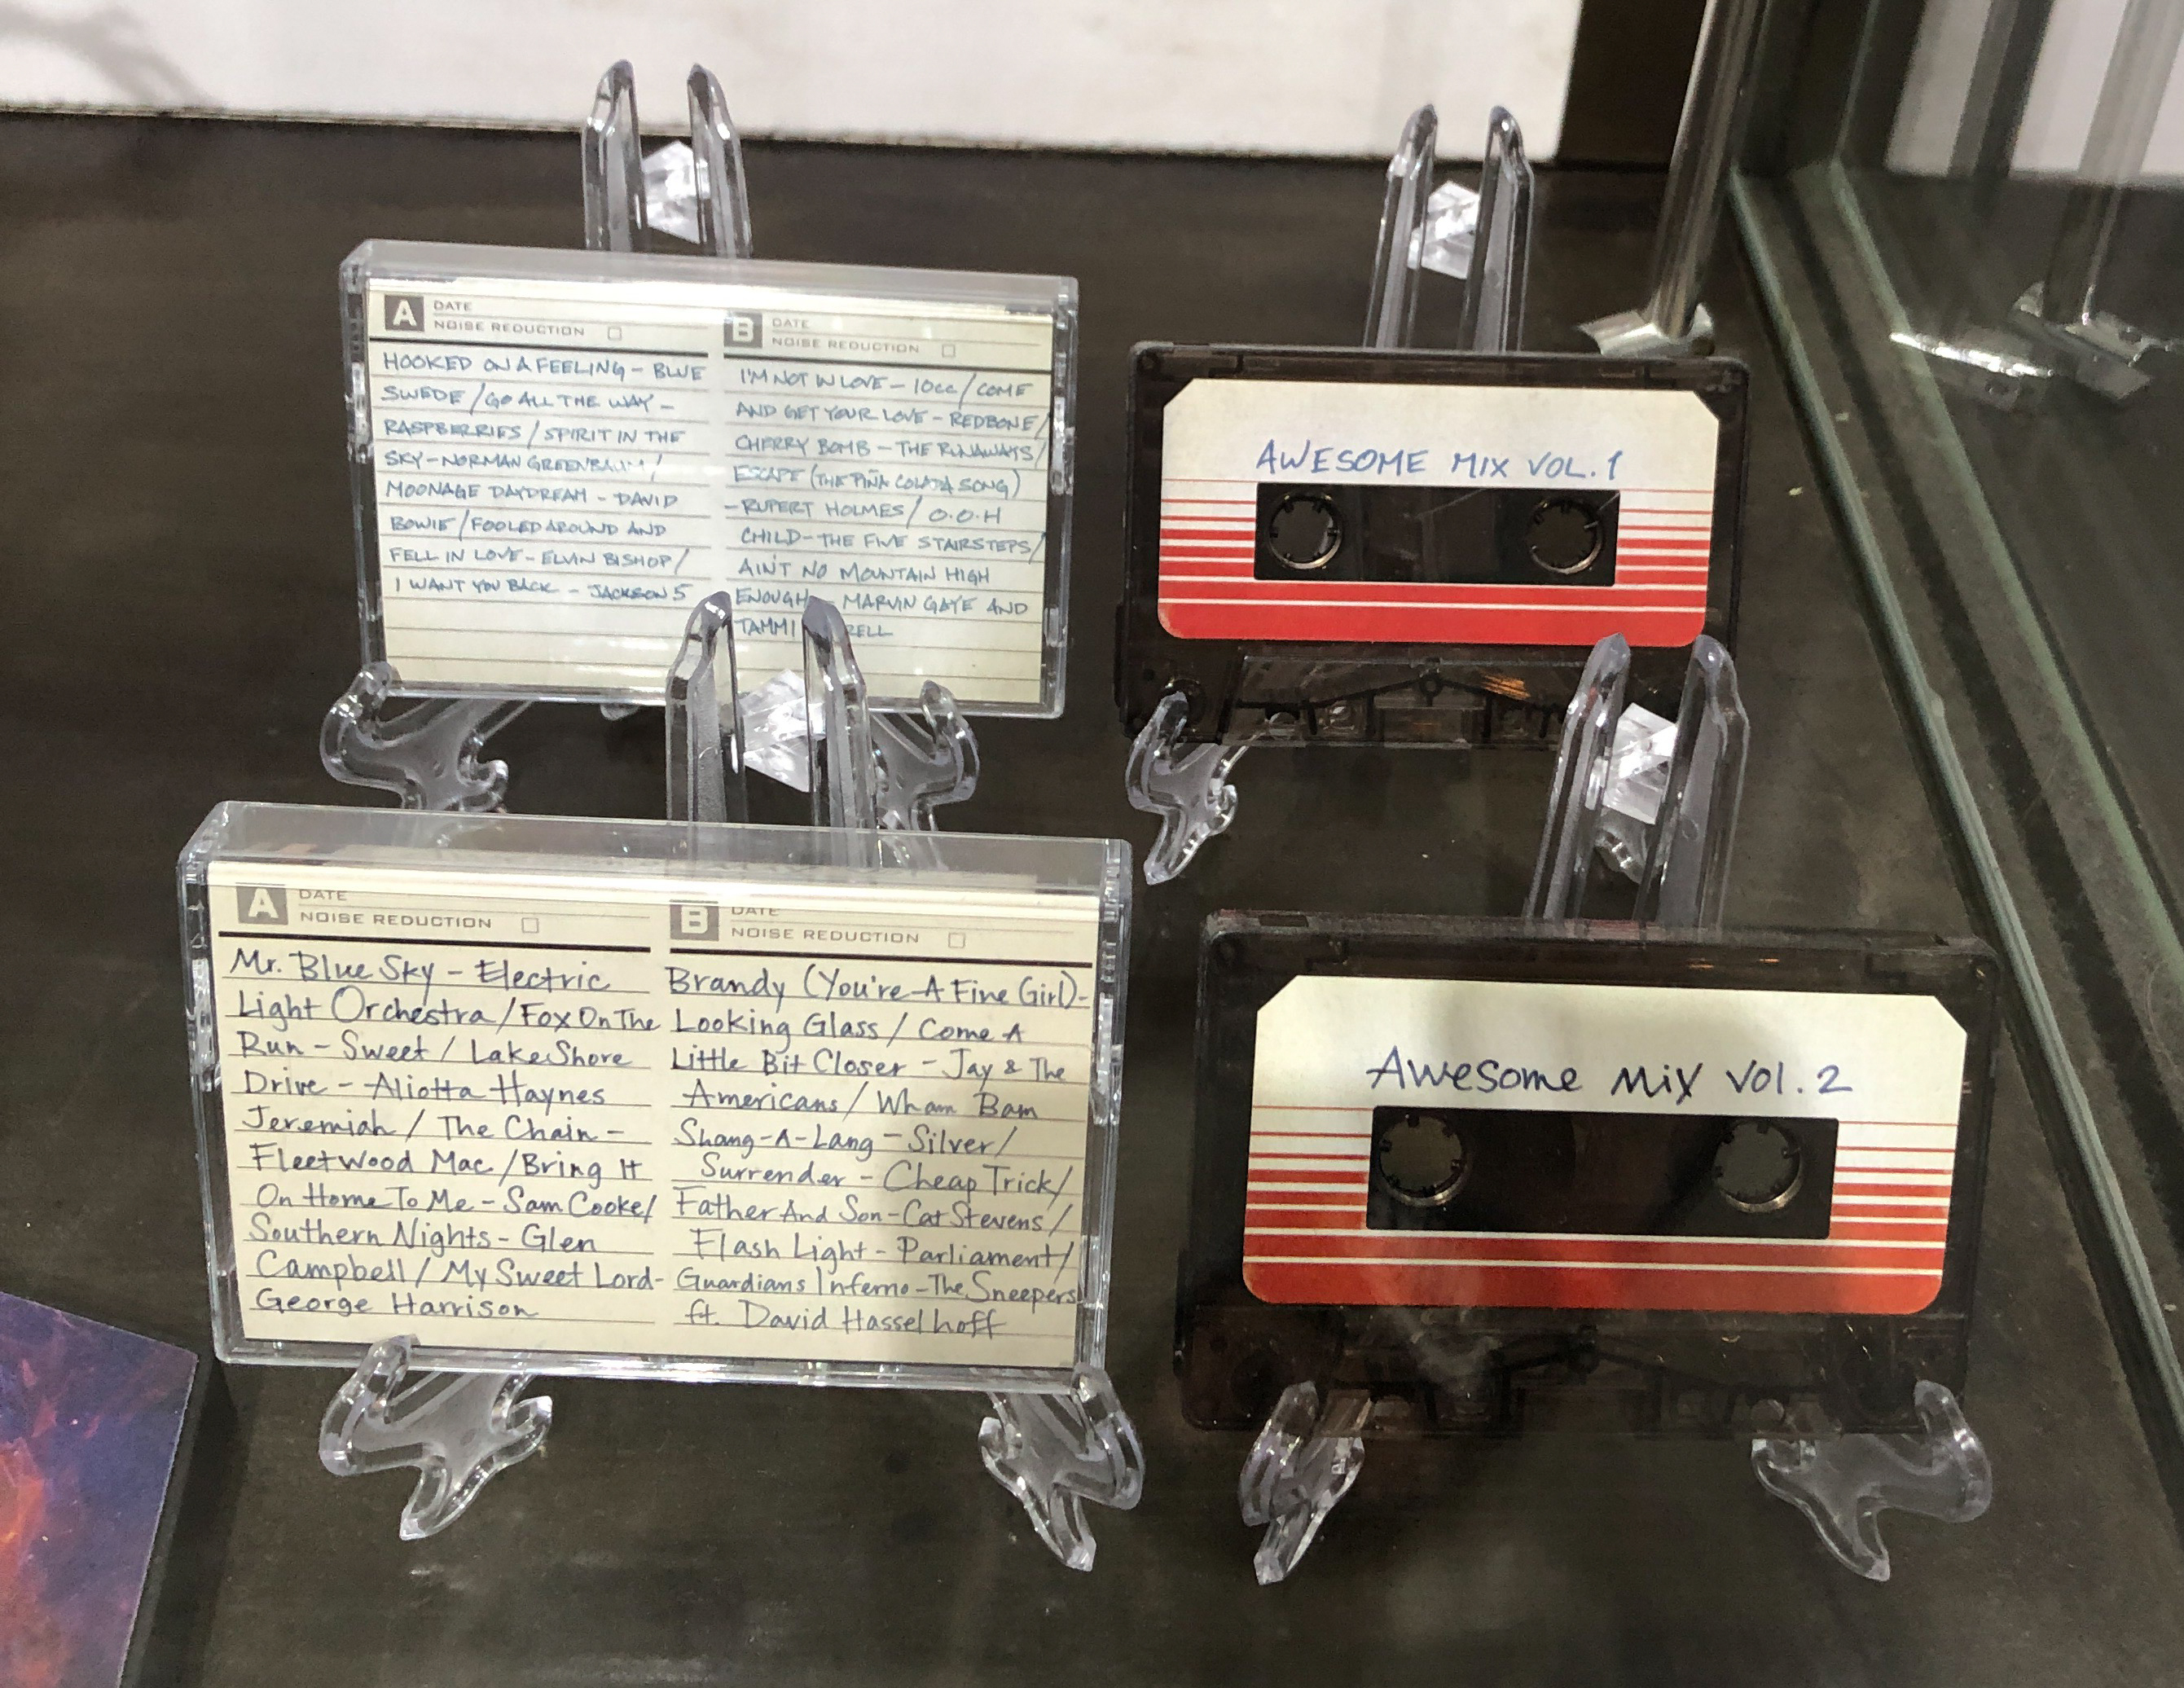 A DATE
NOISE REDUCTION
HOOKED ON A FEELING – BLUE
SWEDE / GO ALL THE WAY –
RASPBERRIES / SPIRIT IN THE
SKY – NORMAN GREENBAUM /
MOONAGE DAYDREAM – DAVID
BOWIE / FOOLED AROUND AND
FELL IN LOVE – ELVIN BISHOP /
I WANT YOU BACK – JACKSON 5
B DATE
NOISE REDUCTION
I'M NOT IN LOVE – 10cc / COME
AND GET YOUR LOVE – REDBONE /
CHERRY BOMB – THE RUNAWAYS /
ESCAPE (THE PIÑA COLADA SONG)
– RUPERT HOLMES / O-O-H
CHILD – THE FIVE STAIRSTEPS /
AIN'T NO MOUNTAIN HIGH
ENOUGH – MARVIN GAYE AND
TAMMI
AWESOME MIX VOL. 1
A DATE
NOISE REDUCTION
Mr. Blue Sky – Electric
Light Orchestra / Fox On The
Run – Sweet / Lake Shore
Drive – Aliotta Haynes
Jeremiah / The Chain –
Fleetwood Mac / Bring It
On Home To Me – Sam Cooke /
Southern Nights – Glen
Campbell / My Sweet Lord –
George Harrison
B DATE
NOISE REDUCTION
Brandy (You're A Fine Girl) –
Looking Glass / Come A
Little Bit Closer – Jay & The
Americans / Wham Bam
Shang-A-Lang – Silver /
Surrender – Cheap Trick /
Father And Son – Cat Stevens /
Flash Light – Parliament /
Guardians Inferno – The Sneepers
ft. David Hasselhoff
Awesome Mix Vol. 2